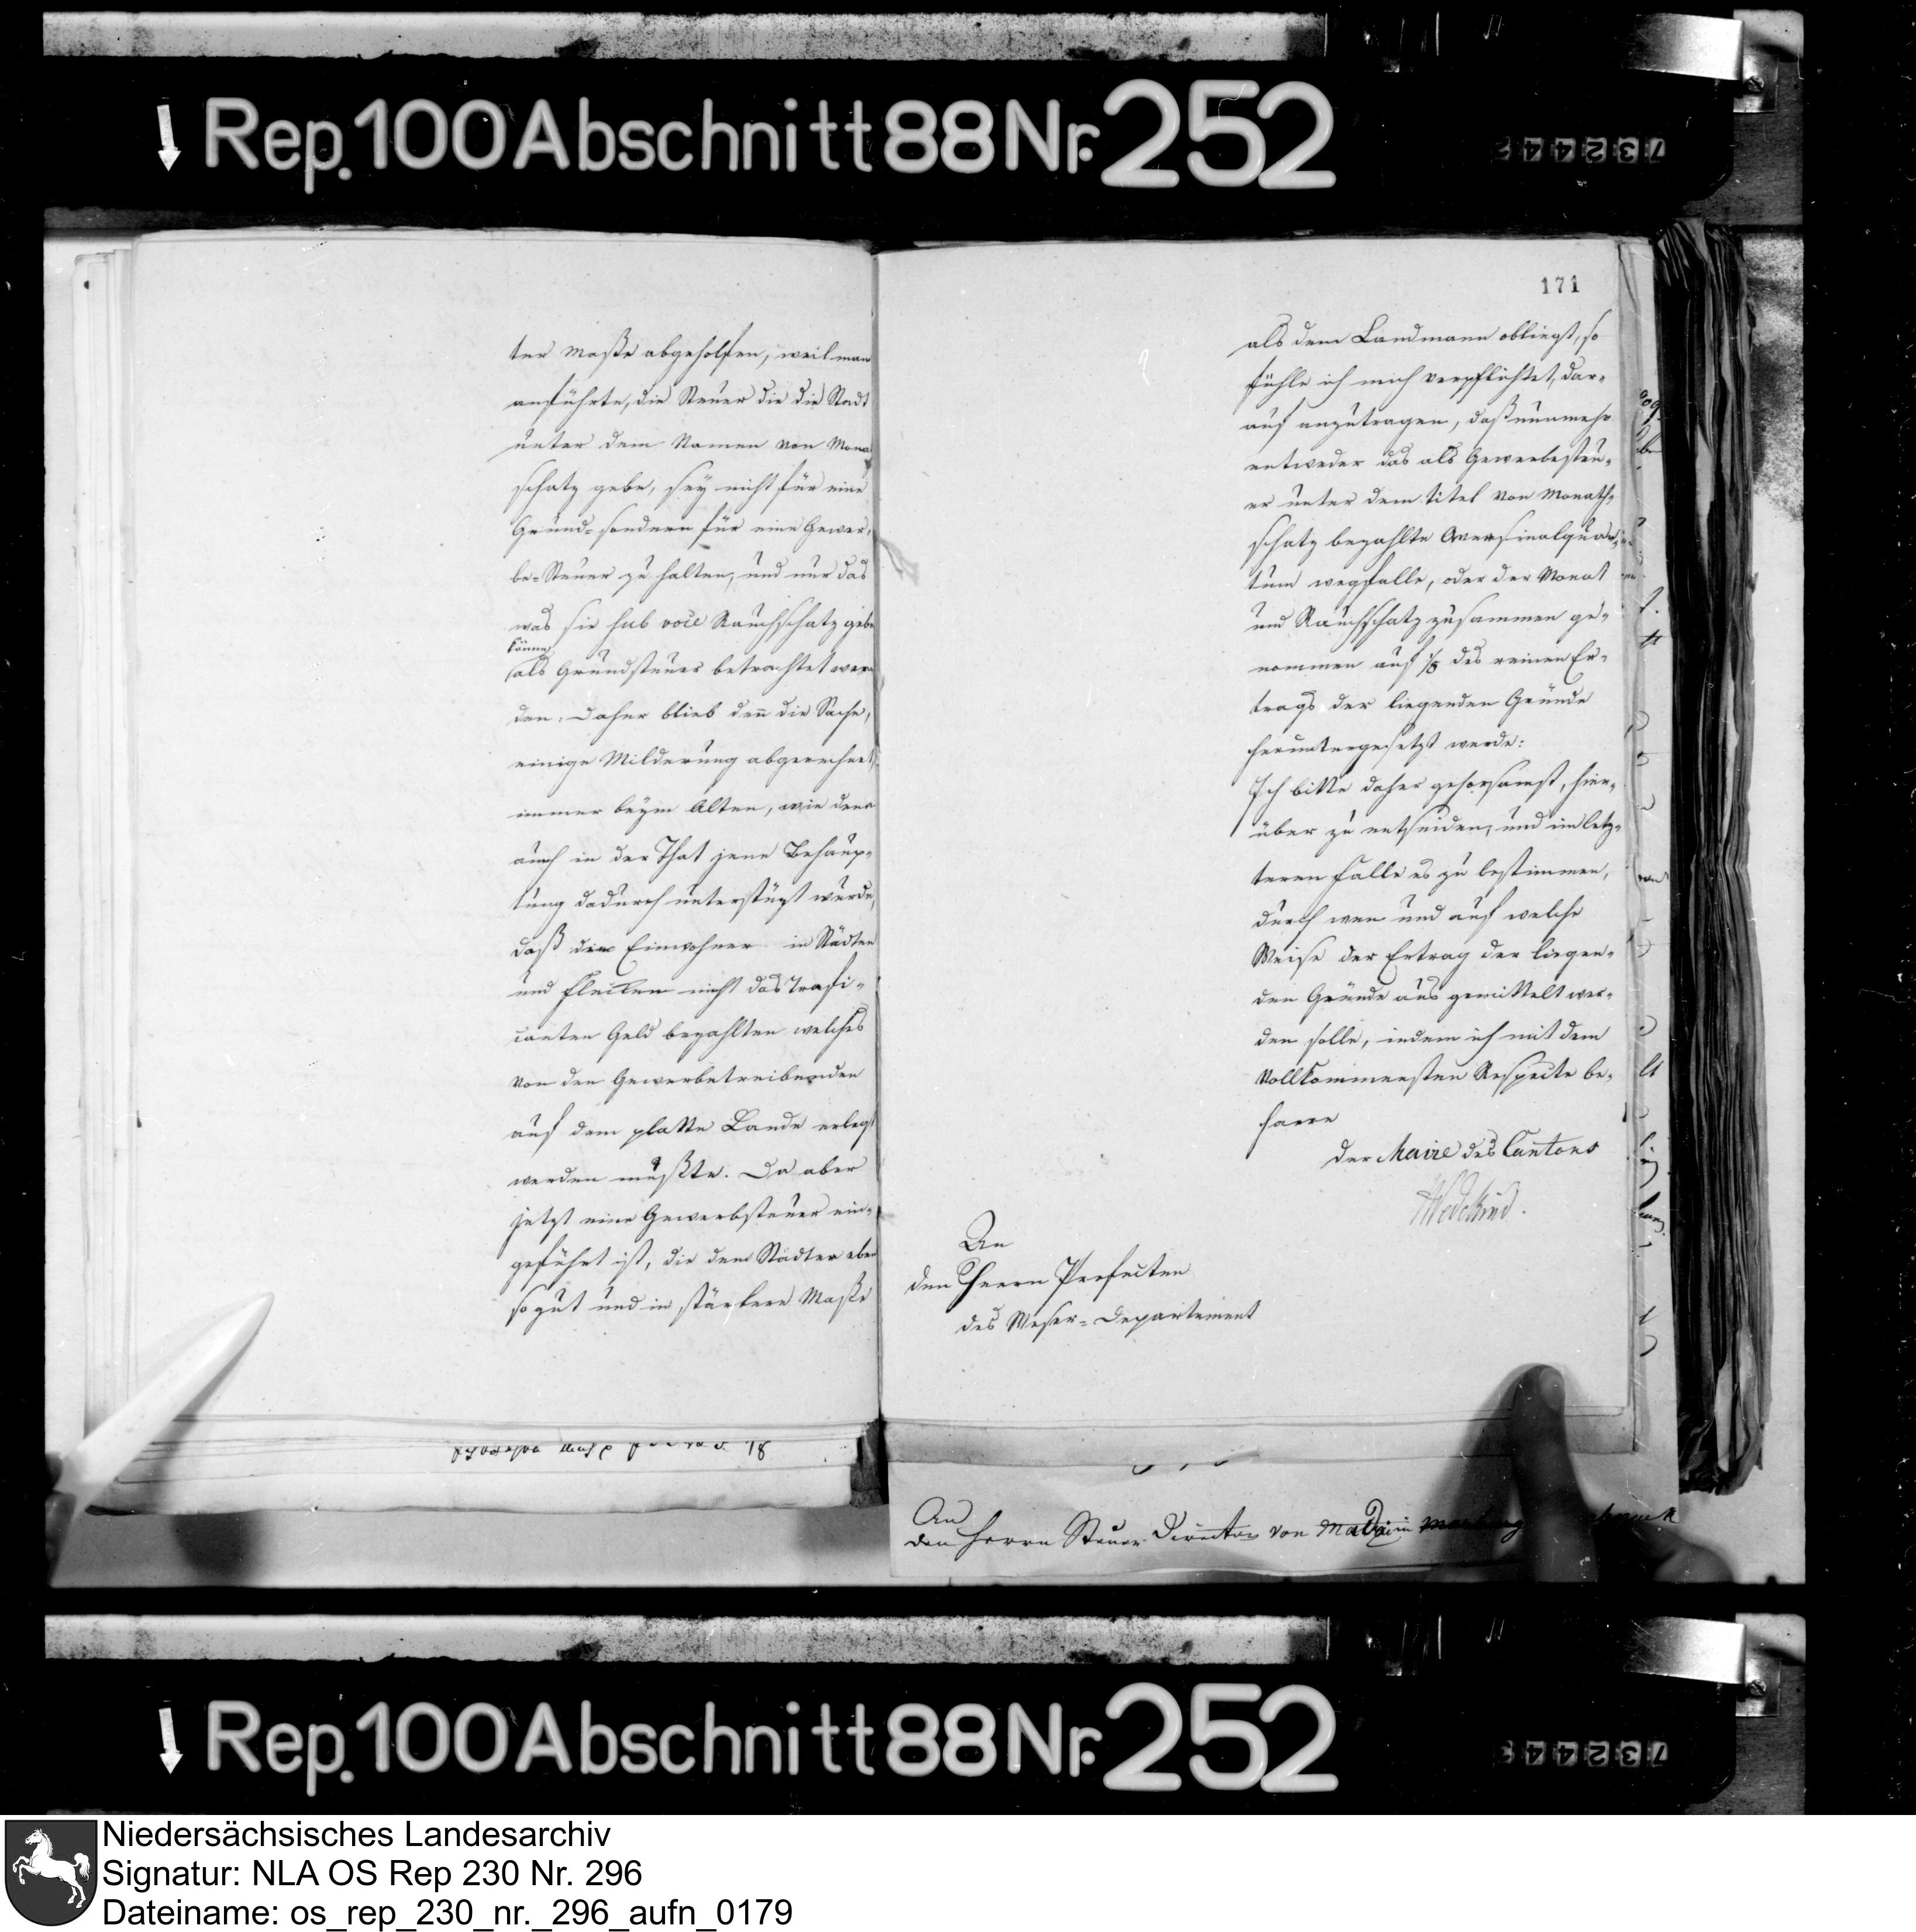 Rep. 100 Abschnitt 88 Nr. 252
732442
ter Maße abgeholfen, weil man
anführte, die Steuer die die Stadt
unter dem Namen von Mona
schatz gebe, sey nicht für eine
Grund- sondern für eine Gewer-
be-Steuer zu halten, und nur das
was sie sub voce Rauchschatz gebe
könne
als Grundsteuer betrachtet wer
den. Daher blieb den̅ die Sache,
einige Milderung abgerechnet,
immer beym Alten, wie denn
auch in der That jene Behaup-
tung dadurch unterstüzt wurde,
daß die Einwohner in Städten
und Flecken nicht das Trafi-
canten Geld bezahlten welches
von den Gewerbetreibenden
auf dem platte Lande erlegt
werden mußte. Da aber
jetzt eine Gewerbsteuer ein-
geführt ist, die dem Städter eben
so gut und in stärkere Maße
171
als dem Landmann obliegt, so
fühle ich mich verpflichtet, dar-
auf anzutragen, daß nunmehr
entweder das als Gewerbesteu-
er unter dem titel von Monath-
schatz bezahlte Aversionalquan-
tum wegfalle, oder der Monat
und Rauchschatz zusammen ge-
nommen auf 1/5 des reinen Er-
trags der liegenden Gründe
heruntergesetzt werde:
Ich bitte daher gehorsamst, hier-
über zu entscheiden, und im letz-
teren Falle es zu bestimmen,
durch wen und auf welche
Weise der Ertrag der liegen-
den Gründe aus gemittelt wer-
den solle, indem ich mit dem
vollkommensten Respecte be-
harre
der Maire des Cantons
Wedekind.
An
den Herrn Prefecten
des Weser-Departement
An
den Herrn Steuer Director von
Rep. 100 Abschnitt 88 Nr. 252
732443
Niedersächsisches Landesarchiv
Signatur: NLA OS Rep 230 Nr. 296
Dateiname: os_rep_230_nr._296_aufn_0179